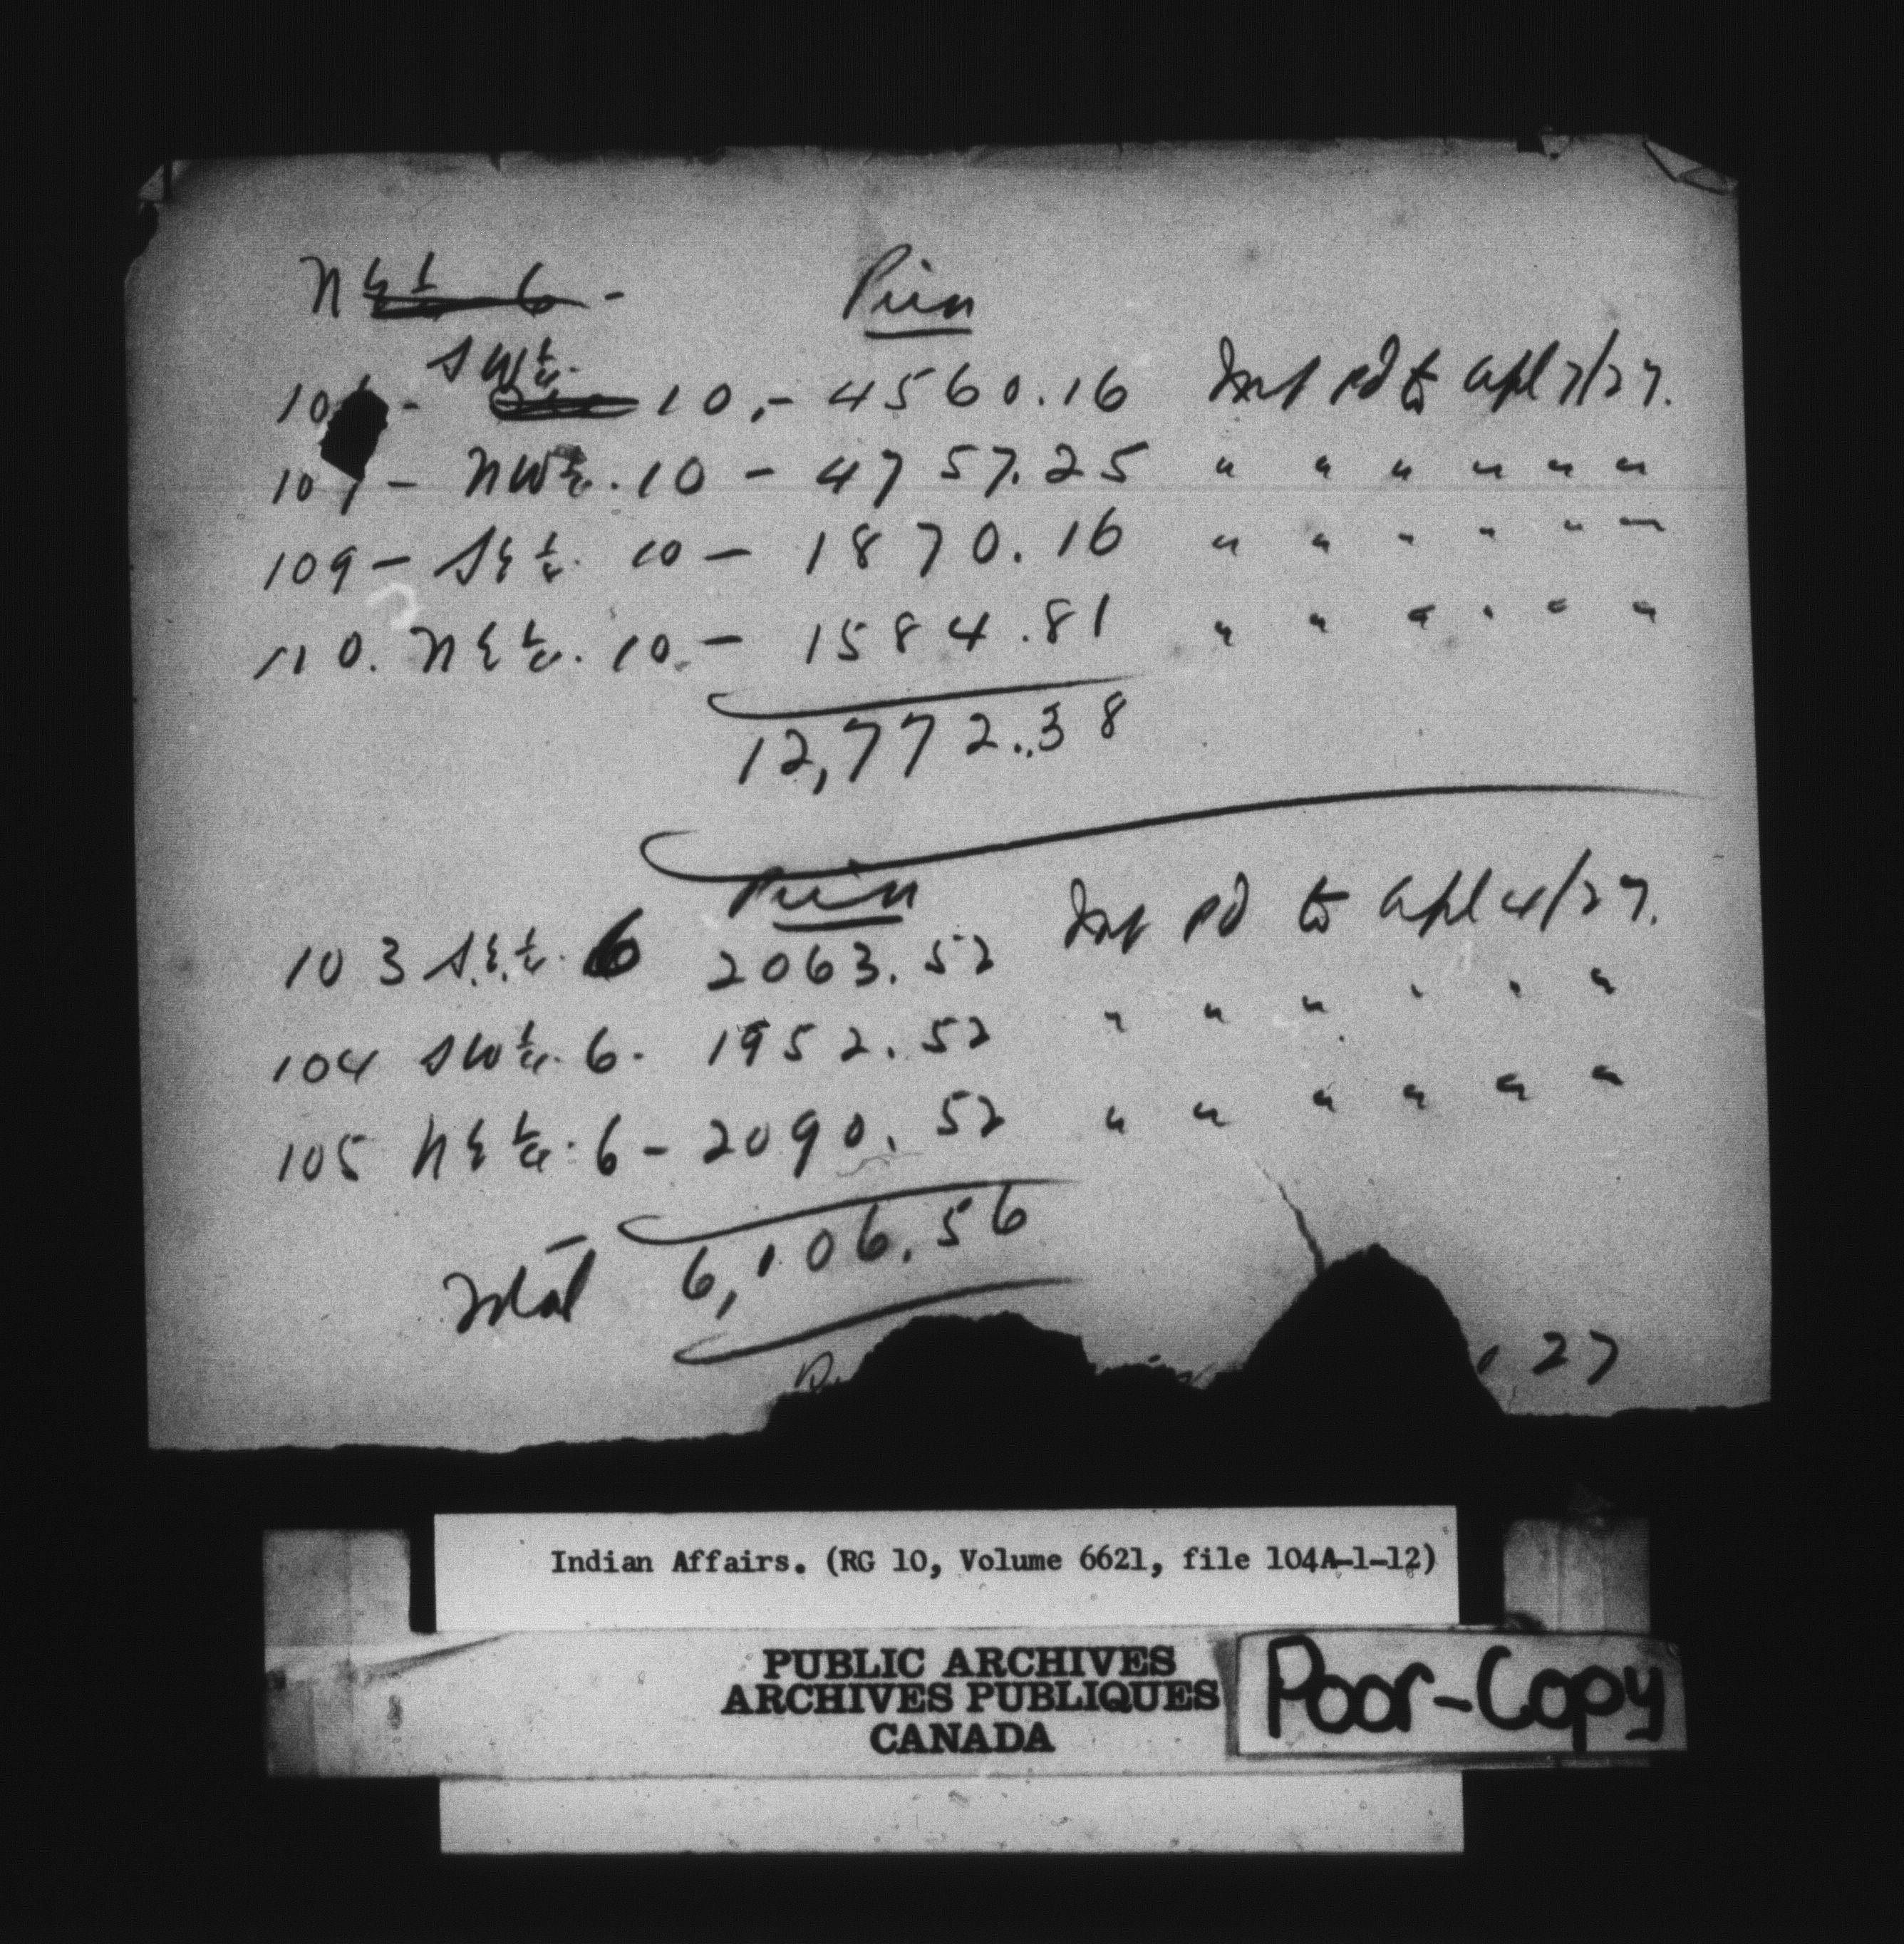 N E ¼ 6 - Prin
SW ¼.
10 - 10,- 4560.16 Int pd to Apl 7/27.
107 - NW ¼. 10 - 4757.25 " " " " " "
109 - SE ¼. 10 - 1870.16 " " " " " "
110. NE ¼. 10. - 1584.81 " " " " " "
12,772.38
Prin
103 S.E. ¼. 6 2063.52 Int pd to Apl 4/27.
104 SW ¼. 6. 1952.52 " " " " " "
105 NE ¼. 6 - 2090.52 " " " " " "
Total 6,106.56
27
Indian Affairs. (RG 10, Volume 6621, file 104A-1-12)
PUBLIC ARCHIVES
ARCHIVES PUBLIQUES
CANADA
Poor-Copy